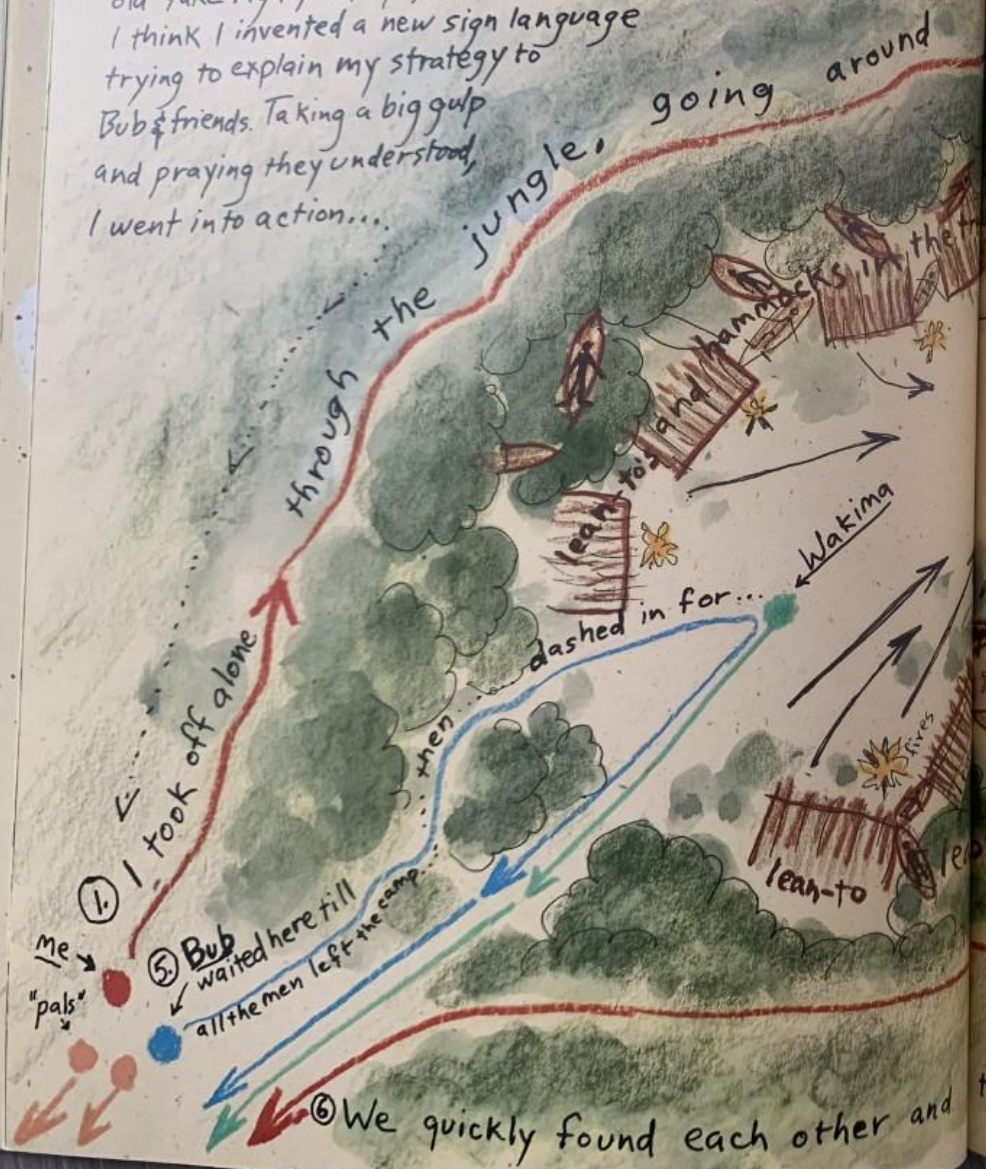 I think I invented a new sign language
trying to explain my strategy to
Bub & friends. Taking a big gulp
and praying they understood,
I went into action...
1. I took off alone through the jungle, going around
lean-to's and hammocks in the
Wakima
Me
"pals"
5. Bub
waited here till
all the men left the camp...
...then... dashed in for...
fires
lean-to
6 We quickly found each other and